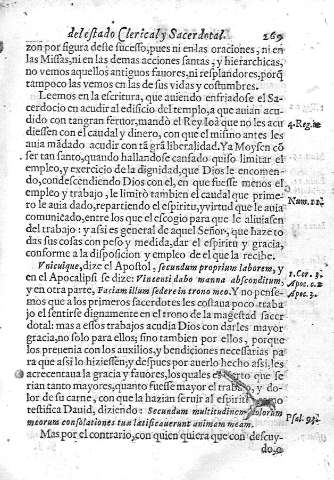 del estado Clerical y Sacerdotal. 269
zon por figura deste sucesso, pues ni en las oraciones, ni en
las Missas, ni en las demas acciones santas, y hierarchicas,
no vemos aquellos antiguos fauores, ni resplandores, porq̃
tampoco las vemos en las de sus vidas y costumbres.
Leemos en la escritura, que auiendo enfriadose el Sa-
cerdocio en acudir al edificio del templo, a que auian acu-
dido con tan gran feruor, mandò el Rey Ioà que no les acu
diessen con el caudal y dinero, con que el mismo antes les
auia mãdado acudir con tã grã liberalidad. Ya Moysen cõ
ser tan santo, quando hallandose cansado quiso limitar el
empleo, y exercicio de la dignidad, que Dios le encomen-
do, condescendiendo Dios con el, en que fuesse menos el
empleo y trabajo, le limitò tambien el caudal que prime-
ro le auia dado, repartiendo el espiritu, y virtud que le auia
comunicado, entre los que el escogio para que le aliuiasen
del trabajo: y assi es general de aquel Señor, que haze to
das sus cosas con peso y medida, dar el espiritu y gracia,
conforme a la disposicion y empleo de el que la recibe.
Vnicuique, dize el Apostol, secundum proprium laborem, y
en el Apocalipsi se dize: Vincenti dabo manna absconditum,
y en otra parte, Faciam illum sedere in trono meo. Y no pense-
mos que a los primeros sacerdotes les costaua poco traba-
jo el sentirse dignamente en el trono de la magestad sacer
dotal: mas a essos trabajos acudia Dios con darles mayor
gracia, no solo para ellos; sino tambien por ellos, porque
los preuenia con los auxilios, y bendiciones necessarias pa
ra que assi lo hiziessen, y despues por auerlo hecho assi, les
acrecentaua la gracia y fauores, los quales es cierto que se
rian tanto mayores, quanto fuesse mayor el trabajo, y do-
lor de su carne, con que la hazian seruir al espiritu como
testifica Dauid, diziendo: Secundum multitudinem dolorum
meorum consolationes tuæ lætificauerunt animam meam.
Mas por el contrario, con quien quiera que con descuy-
do, o
4. Reg.
Num. 11.
1. Cor. 3.
Apoc. c. 2
Apoc. 3.
Psal. 93.